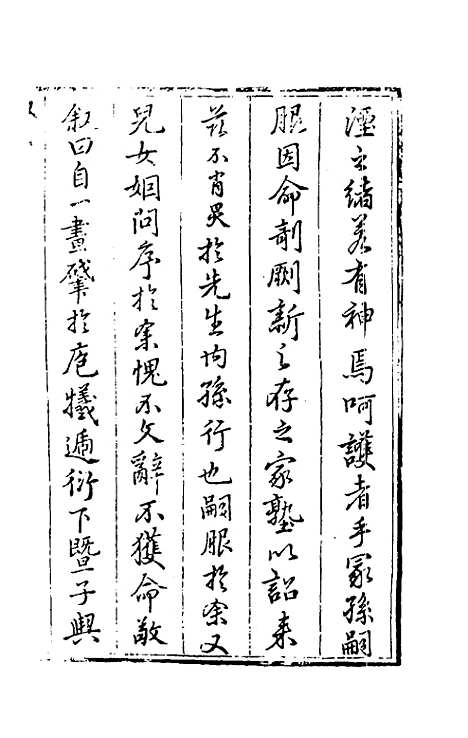 湮之緒若有神焉呵護者乎冢孫嗣
服因命剞劂新之存之家塾以詔来
茲不肖昊於先生均孫行也嗣服於余又
兒女姻問序於余愧不文辭不獲命敢
叙曰自一畫肇於庖犧遞衍下暨子輿